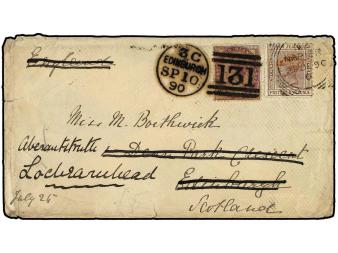 England
3C
EDINBURGH
SP 10
90
131
Miss M. Borthwick
Dean Park Crescent
Lochearnhead
Edinburgh
Scotland
July 25